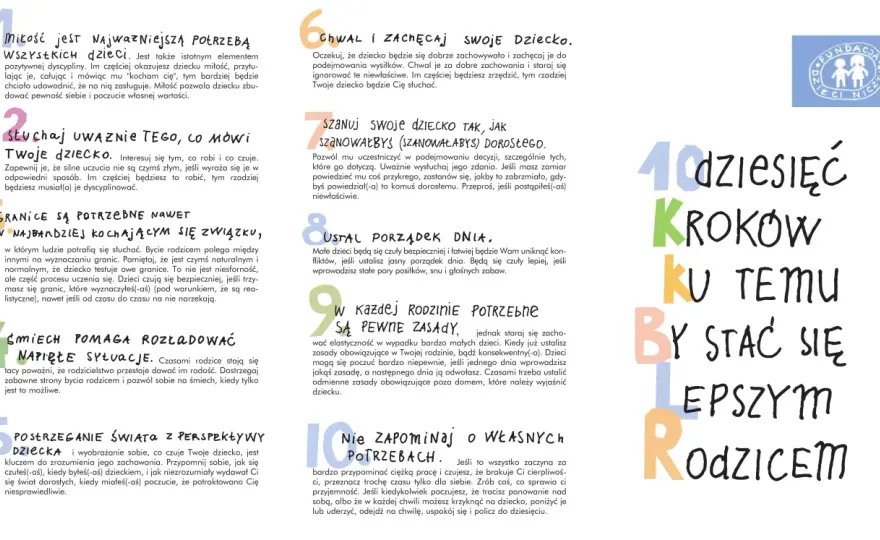 1. Miłość jest najważniejszą potrzebą
wszystkich dzieci. Jest także istotnym elementem
pozytywnej dyscypliny. Im częściej okazujesz dziecku miłość, przytu-
lając je, całując i mówiąc mu "kocham cię", tym bardziej będzie
chciało udowodnić, że na nią zasługuje. Miłość pozwala dziecku zbu-
dować pewność siebie i poczucie własnej wartości.
2. Słuchaj uważnie tego, co mówi
Twoje dziecko. Interesuj się tym, co robi i co czuje.
Zapewnij je, że silne uczucia nie są czymś złym, jeśli wyraża się je w
odpowiedni sposób. Im częściej będziesz to robić, tym rzadziej
będziesz musiał(a) je dyscyplinować.
3. Granice są potrzebne nawet
w najbardziej kochającym się związku,
w którym ludzie potrafią się słuchać. Bycie rodzicem polega między
innymi na wyznaczaniu granic. Pamiętaj, że jest czymś naturalnym i
normalnym, że dziecko testuje owe granice. To nie jest niesforność,
ale część procesu uczenia się. Dzieci czują się bezpieczniej, jeśli trzy-
masz się granic, które wyznaczyłeś(-aś) (pod warunkiem, że są rea-
listyczne), nawet jeśli od czasu do czasu na nie narzekają.
4. Śmiech pomaga rozładować
napięte sytuacje. Czasami rodzice stają się
tacy poważni, że rodzicielstwo przestaje dawać im radość. Dostrzegaj
zabawne strony bycia rodzicem i pozwól sobie na śmiech, kiedy tylko
jest to możliwe.
5 Postrzeganie świata z perspektywy
dziecka i wyobrażanie sobie, co czuje Twoje dziecko, jest
kluczem do zrozumienia jego zachowania. Przypomnij sobie, jak się
czułeś(-aś), kiedy byłeś(-aś) dzieckiem, i jak niezrozumiały wydawał Ci
się świat dorosłych, kiedy miałeś(-aś) poczucie, że potraktowano Cię
niesprawiedliwie.
6. Chwal i zachęcaj swoje dziecko.
Oczekuj, że dziecko będzie się dobrze zachowywało i zachęcaj je do
podejmowania wysiłków. Chwal je za dobre zachowania i staraj się
ignorować te niewłaściwe. Im częściej będziesz zrzędzić, tym rzadziej
Twoje dziecko będzie Cię słuchać.
7. Szanuj swoje dziecko tak, jak
szanowałbyś (szanowałabyś) dorosłego.
Pozwól mu uczestniczyć w podejmowaniu decyzji, szczególnie tych,
które go dotyczą. Uważnie wysłuchaj jego zdania. Jeśli masz zamiar
powiedzieć mu coś przykrego, zastanów się, jakby to zabrzmiało, gdy-
byś powiedział(-a) to komuś dorosłemu. Przeproś, jeśli postąpiłeś(-aś)
niewłaściwie.
8. Ustal porządek dnia.
Małe dzieci będą się czuły bezpieczniej i łatwiej będzie Wam uniknąć kon-
fliktów, jeśli ustalisz jasny porządek dnia. Będą się czuły lepiej, jeśli
wprowadzisz stałe pory posiłków, snu i głośnych zabaw.
9 W każdej rodzinie potrzebne
są pewne zasady, jednak staraj się zacho-
wać elastyczność w wypadku bardzo małych dzieci. Kiedy już ustalisz
zasady obowiązujące w Twojej rodzinie, bądź konsekwentny(-a). Dzieci
mogą się poczuć bardzo niepewnie, jeśli jednego dnia wprowadzisz
jakąś zasadę, a następnego dnia ją odwołasz. Czasami trzeba ustalić
odmienne zasady obowiązujące poza domem, które należy wyjaśnić
dziecku.
10. Nie zapominaj o własnych
potrzebach. Jeśli to wszystko zaczyna za
bardzo przypominać ciężką pracę i czujesz, że brakuje Ci cierpliwoś-
ci, przeznacz trochę czasu tylko dla siebie. Zrób coś, co sprawia ci
przyjemność. Jeśli kiedykolwiek poczujesz, że tracisz panowanie nad
sobą, albo że w każdej chwili możesz krzyknąć na dziecko, poniżyć je
lub uderzyć, odejdź na chwilę, uspokój się i policz do dziesięciu.
FUNDACJA
DZIECI NICZYJE
10 dziesięć
Kroków
Ku temu
By stać się
Lepszym
Rodzicem